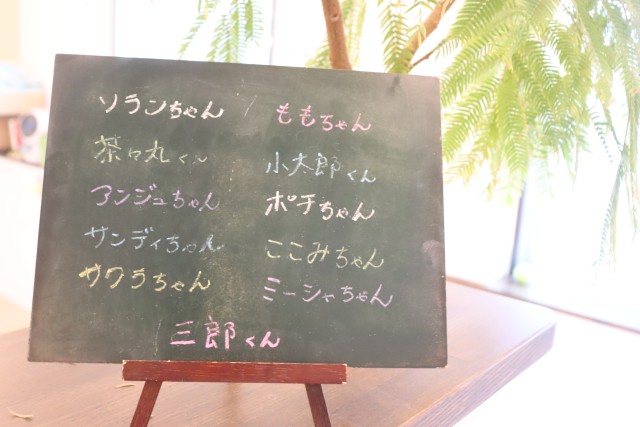 ソランちゃん
ももちゃん
茶々丸くん
小太郎くん
アンジュちゃん
ポチちゃん
サンディちゃん
ここみちゃん
サクラちゃん
ミーシャちゃん
三郎くん